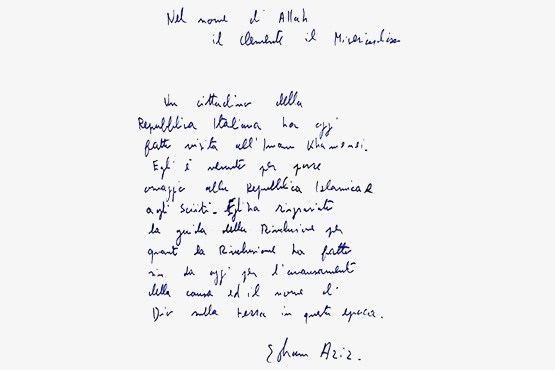 Nel nome d' Allah
il Clemente il Misericordioso
Un cittadino della
Repubblica Italiana ha oggi
fatto visita all'Imam Khamenei.
Egli è venuto per porre
omaggio alla Repubblica Islamica e
agli Sciiti. Egli ha ringraziato
la guida della Rivoluzione per
quanto la Rivoluzione ha fatto
sin da oggi per l'avanzamento
della causa ed il nome di
Dio sulla terra in questa epoca.
Aziz.